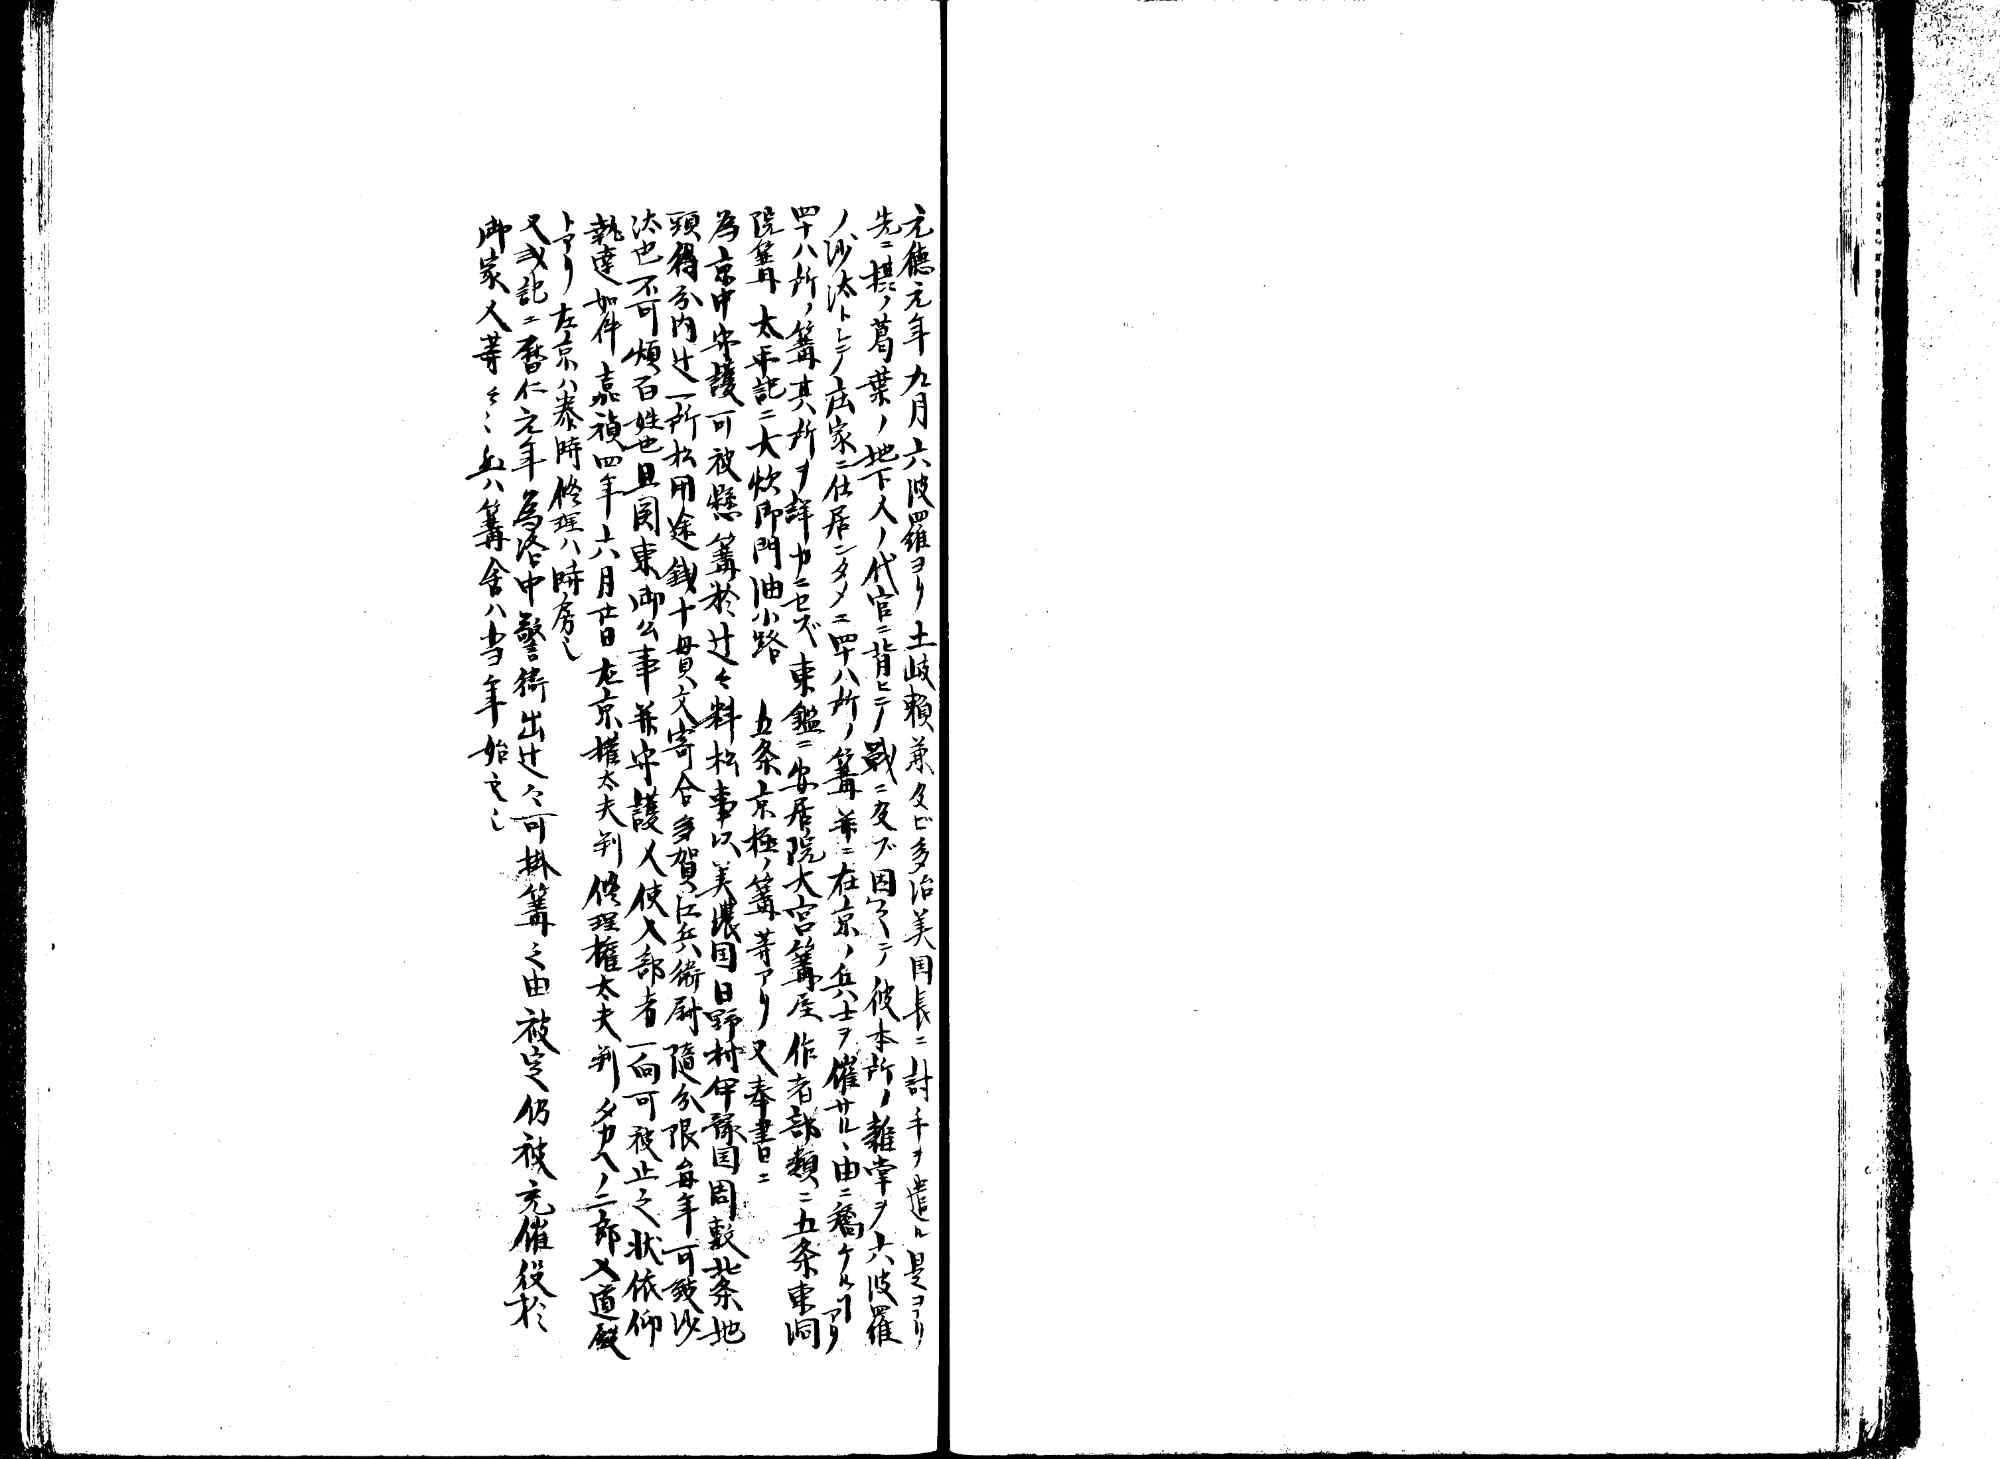 元德元年九月六波羅ヨリ土岐頼兼及ビ多治美国長ニ討手ヲ遣ル是ヨリ
先ニ楠ノ葛葉ノ地下人ノ代官ニ背ヒテ戦ニ及ブ因テ彼本所ノ雜掌ヲ六波羅
ノ沙汰トシテ庄家ニ仕居ンタメニ四十八所ノ篝并ニ在京ノ兵士ヲ催サルヽ由ニ
四十八所ノ篝其所ヲ詳カニセズ東鑑ニ安居院大宮篝屋作者部類ニ五条東洞
院篝太平記ニ大炊御門油小路 五条京極ノ篝等アリ又奉書曰ニ
為京中守護可被懸篝於辻々料松事以美濃国日野村伊豫国周敷北条地
頭得分内辻一所松用途銭十貫文寄合多賀江兵衛尉随分限毎年可致沙
汰也不可煩百姓也且関東御公事并守護人使入部者一向可被止之状依仰
執達如件嘉禎四年六月廿日左京權太夫判修理權太夫判タカヘノ二郎入道殿
トアリ左京ハ泰時修理ハ時房也
又或記ニ暦仁元年為洛中警衛出辻々可掛篝之由被定仍被充催役於
御家人等云々然ハ篝舍ハ当年始之也